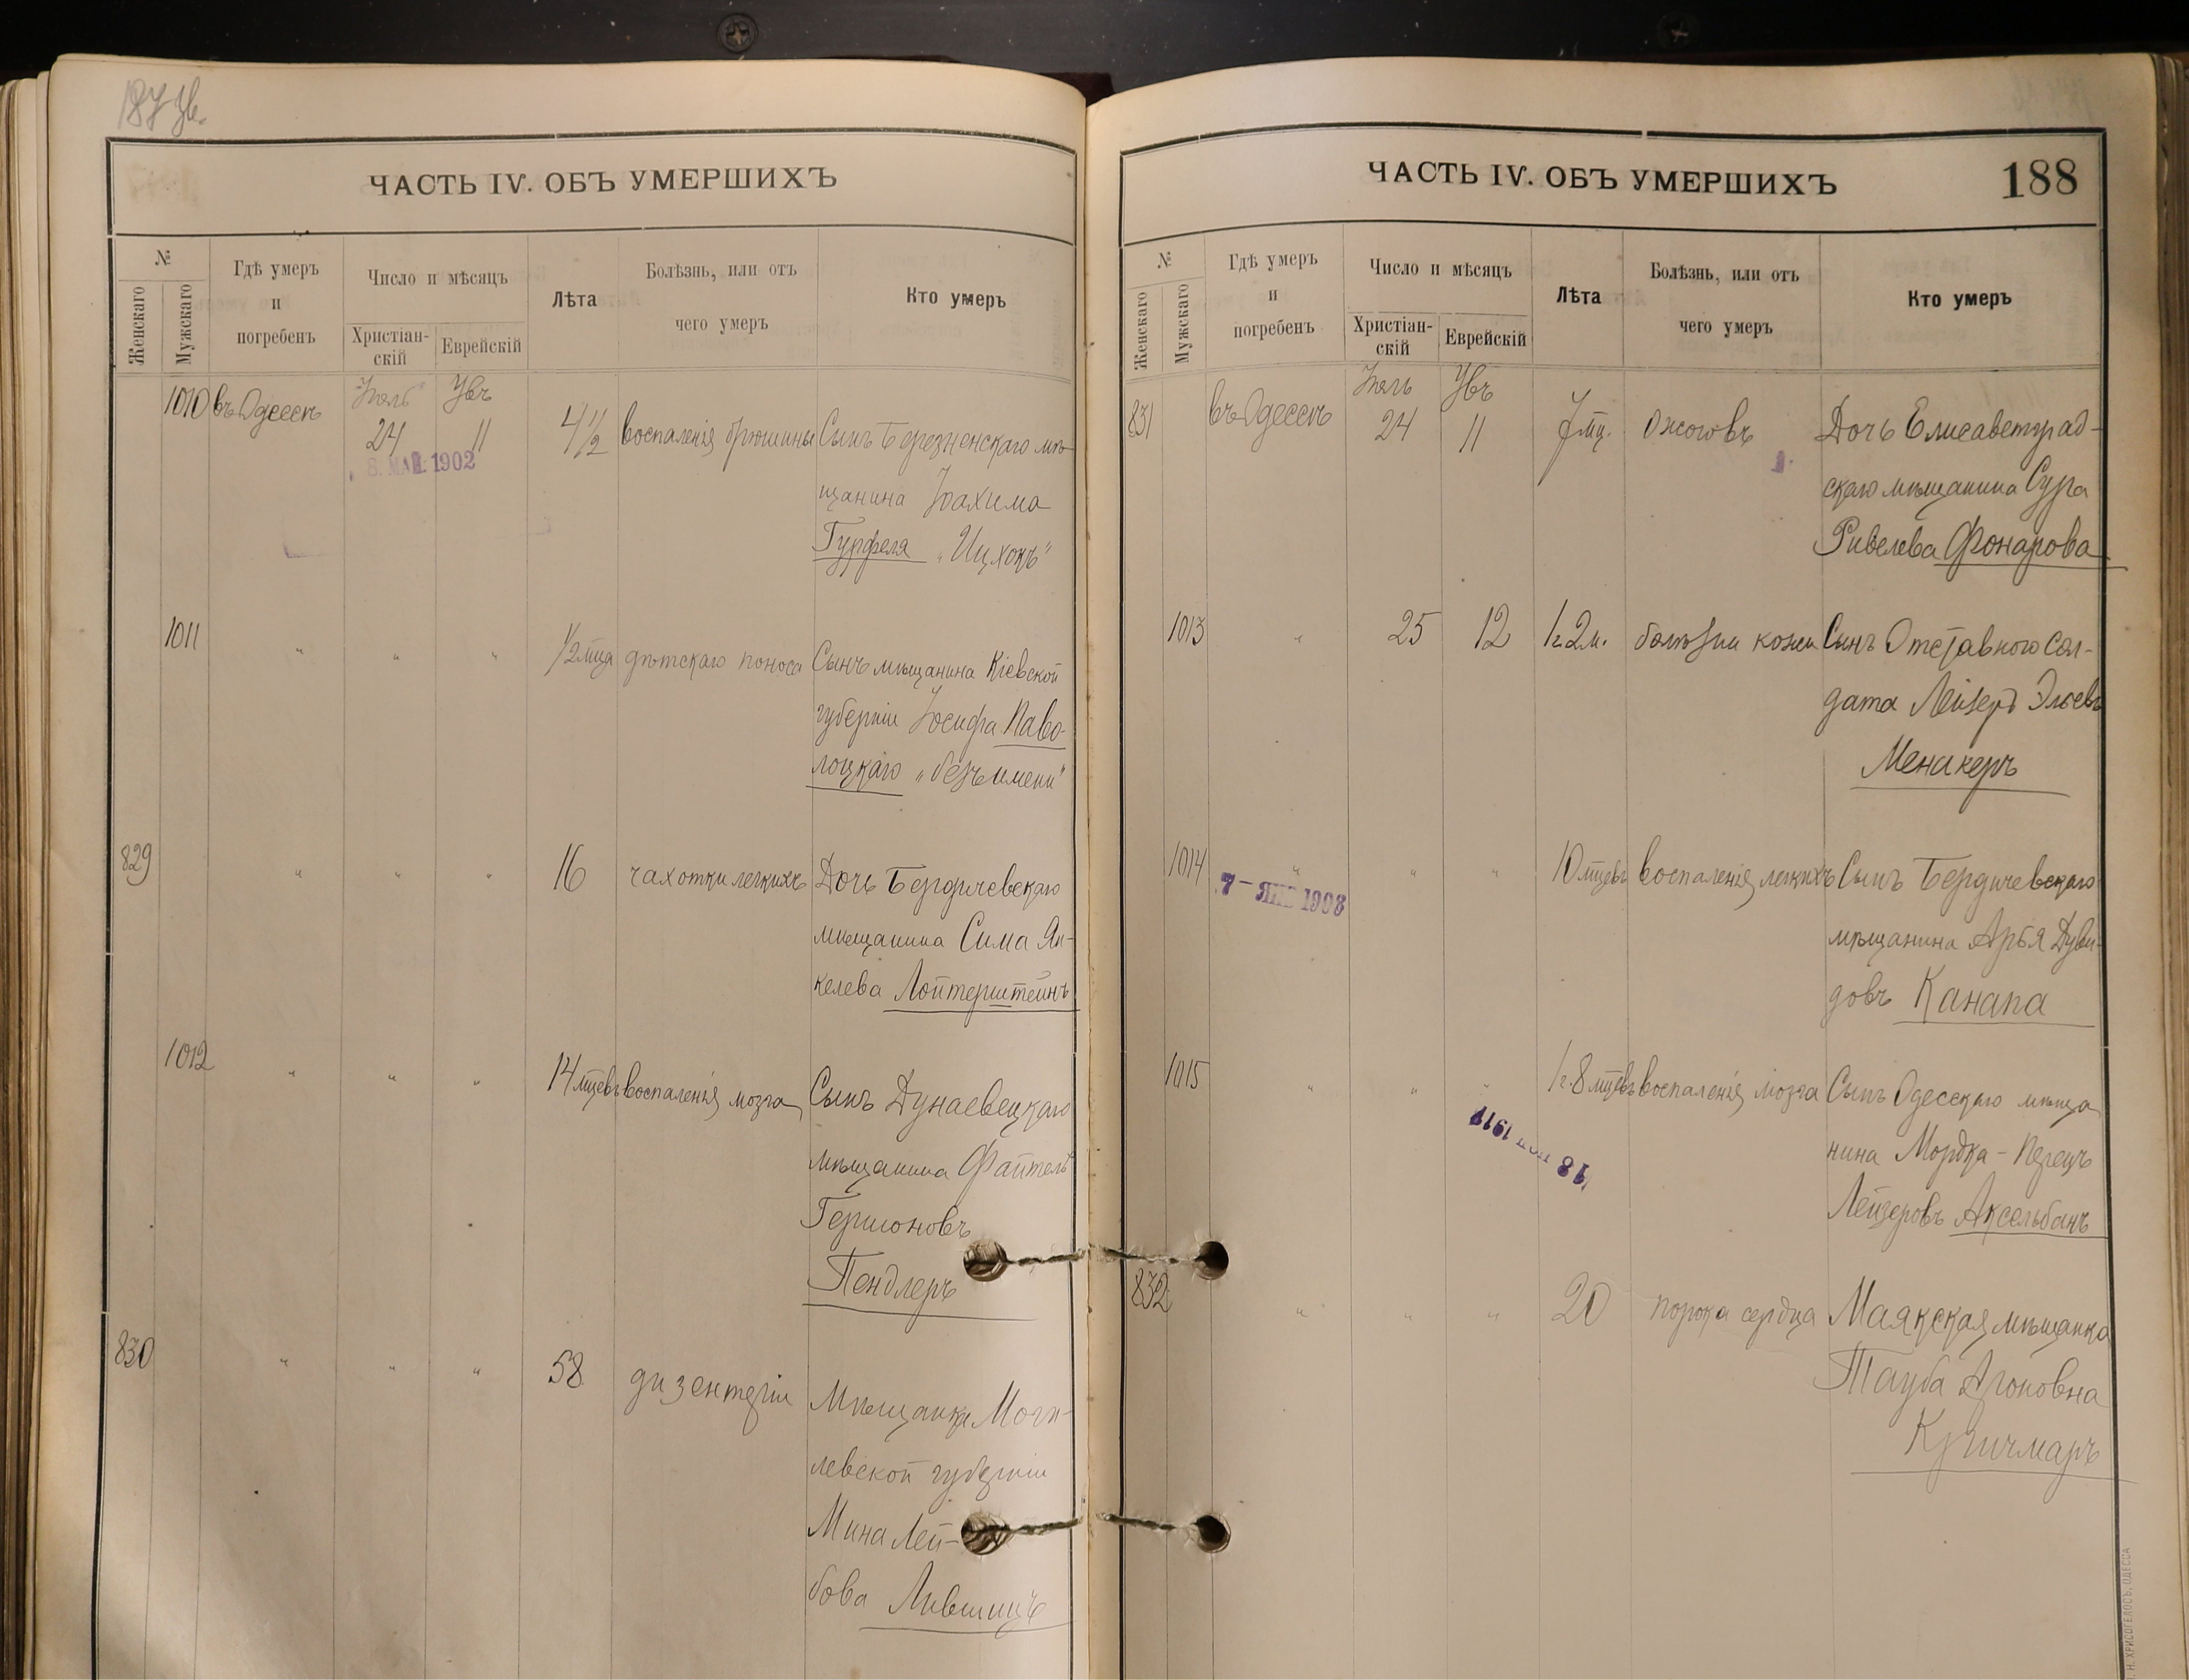 187 зв.
ЧАСТЬ IV. ОБЪ УМЕРШИХЪ
№
Женскаго
Мужскаго
Гдѣ умеръ
и
погребенъ
Число и мѣсяцъ
Христіан-
скій
Еврейскій
Лѣта
Болѣзнь, или отъ
чего умеръ
Кто умеръ
1010 въ Одессѣ Іюль 24 Увъ 11 4 1/2 воспаленія брюшины Сынъ Березненскаго мѣ-
щанина Іоахима
Гурфеля „Ицхокъ"
8. МАР. 1902
1011 " " " 1/2 мца дѣтскаго поноса Сынъ мѣщанина Кіевской
губерніи Іосифа Паво-
лоцкаго „безъ имени"
829 " " " 16 чахотки легкихъ Дочь Бердичевскаго
мѣщанина Сима Ян-
келева Лойтерштейнъ
1012 " " " 14 мцевъ воспаленія мозга Сынъ Дунаевецкаго
мѣщанина Файтель
Гершоновъ
Пендлеръ
830 " " " 58 дизентеріи Мѣщанка Моги-
левской губерніи
Мина Лей-
бова Лившицъ
ЧАСТЬ IV. ОБЪ УМЕРШИХЪ
188
№
Женскаго
Мужскаго
Гдѣ умеръ
и
погребенъ
Число и мѣсяцъ
Христіан-
скій
Еврейскій
Лѣта
Болѣзнь, или отъ
чего умеръ
Кто умеръ
831 въ Одессѣ Іюль 24 Увъ 11 7 мц. ожоговъ Дочь Елисаветград-
скаго мѣщанина Сура
Ривелева Фонарова
1013 " 25 12 1 г. 2 м. болѣзни кожи Сынъ Отставного Сол-
дата Лейзеръ Эльевъ
Менакеръ
1014 " " " 10 мцевъ воспаленія легкихъ Сынъ Бердичевскаго
мѣщанина Арья Дуви-
довъ Канапа
7 - ЯНВ 1908
1015 " " " 1 г. 8 мцевъ воспаленія мозга Сынъ Одесскаго мѣща
нина Мордка - Перецъ
Лейзеровъ Аксельбанъ
18 1917
832 " " " 20 порока сердца Маякская мѣщанка
Тауба Ароновна
Кричмаръ
Н. ХРИСОГЕЛОСЪ, ОДЕССА